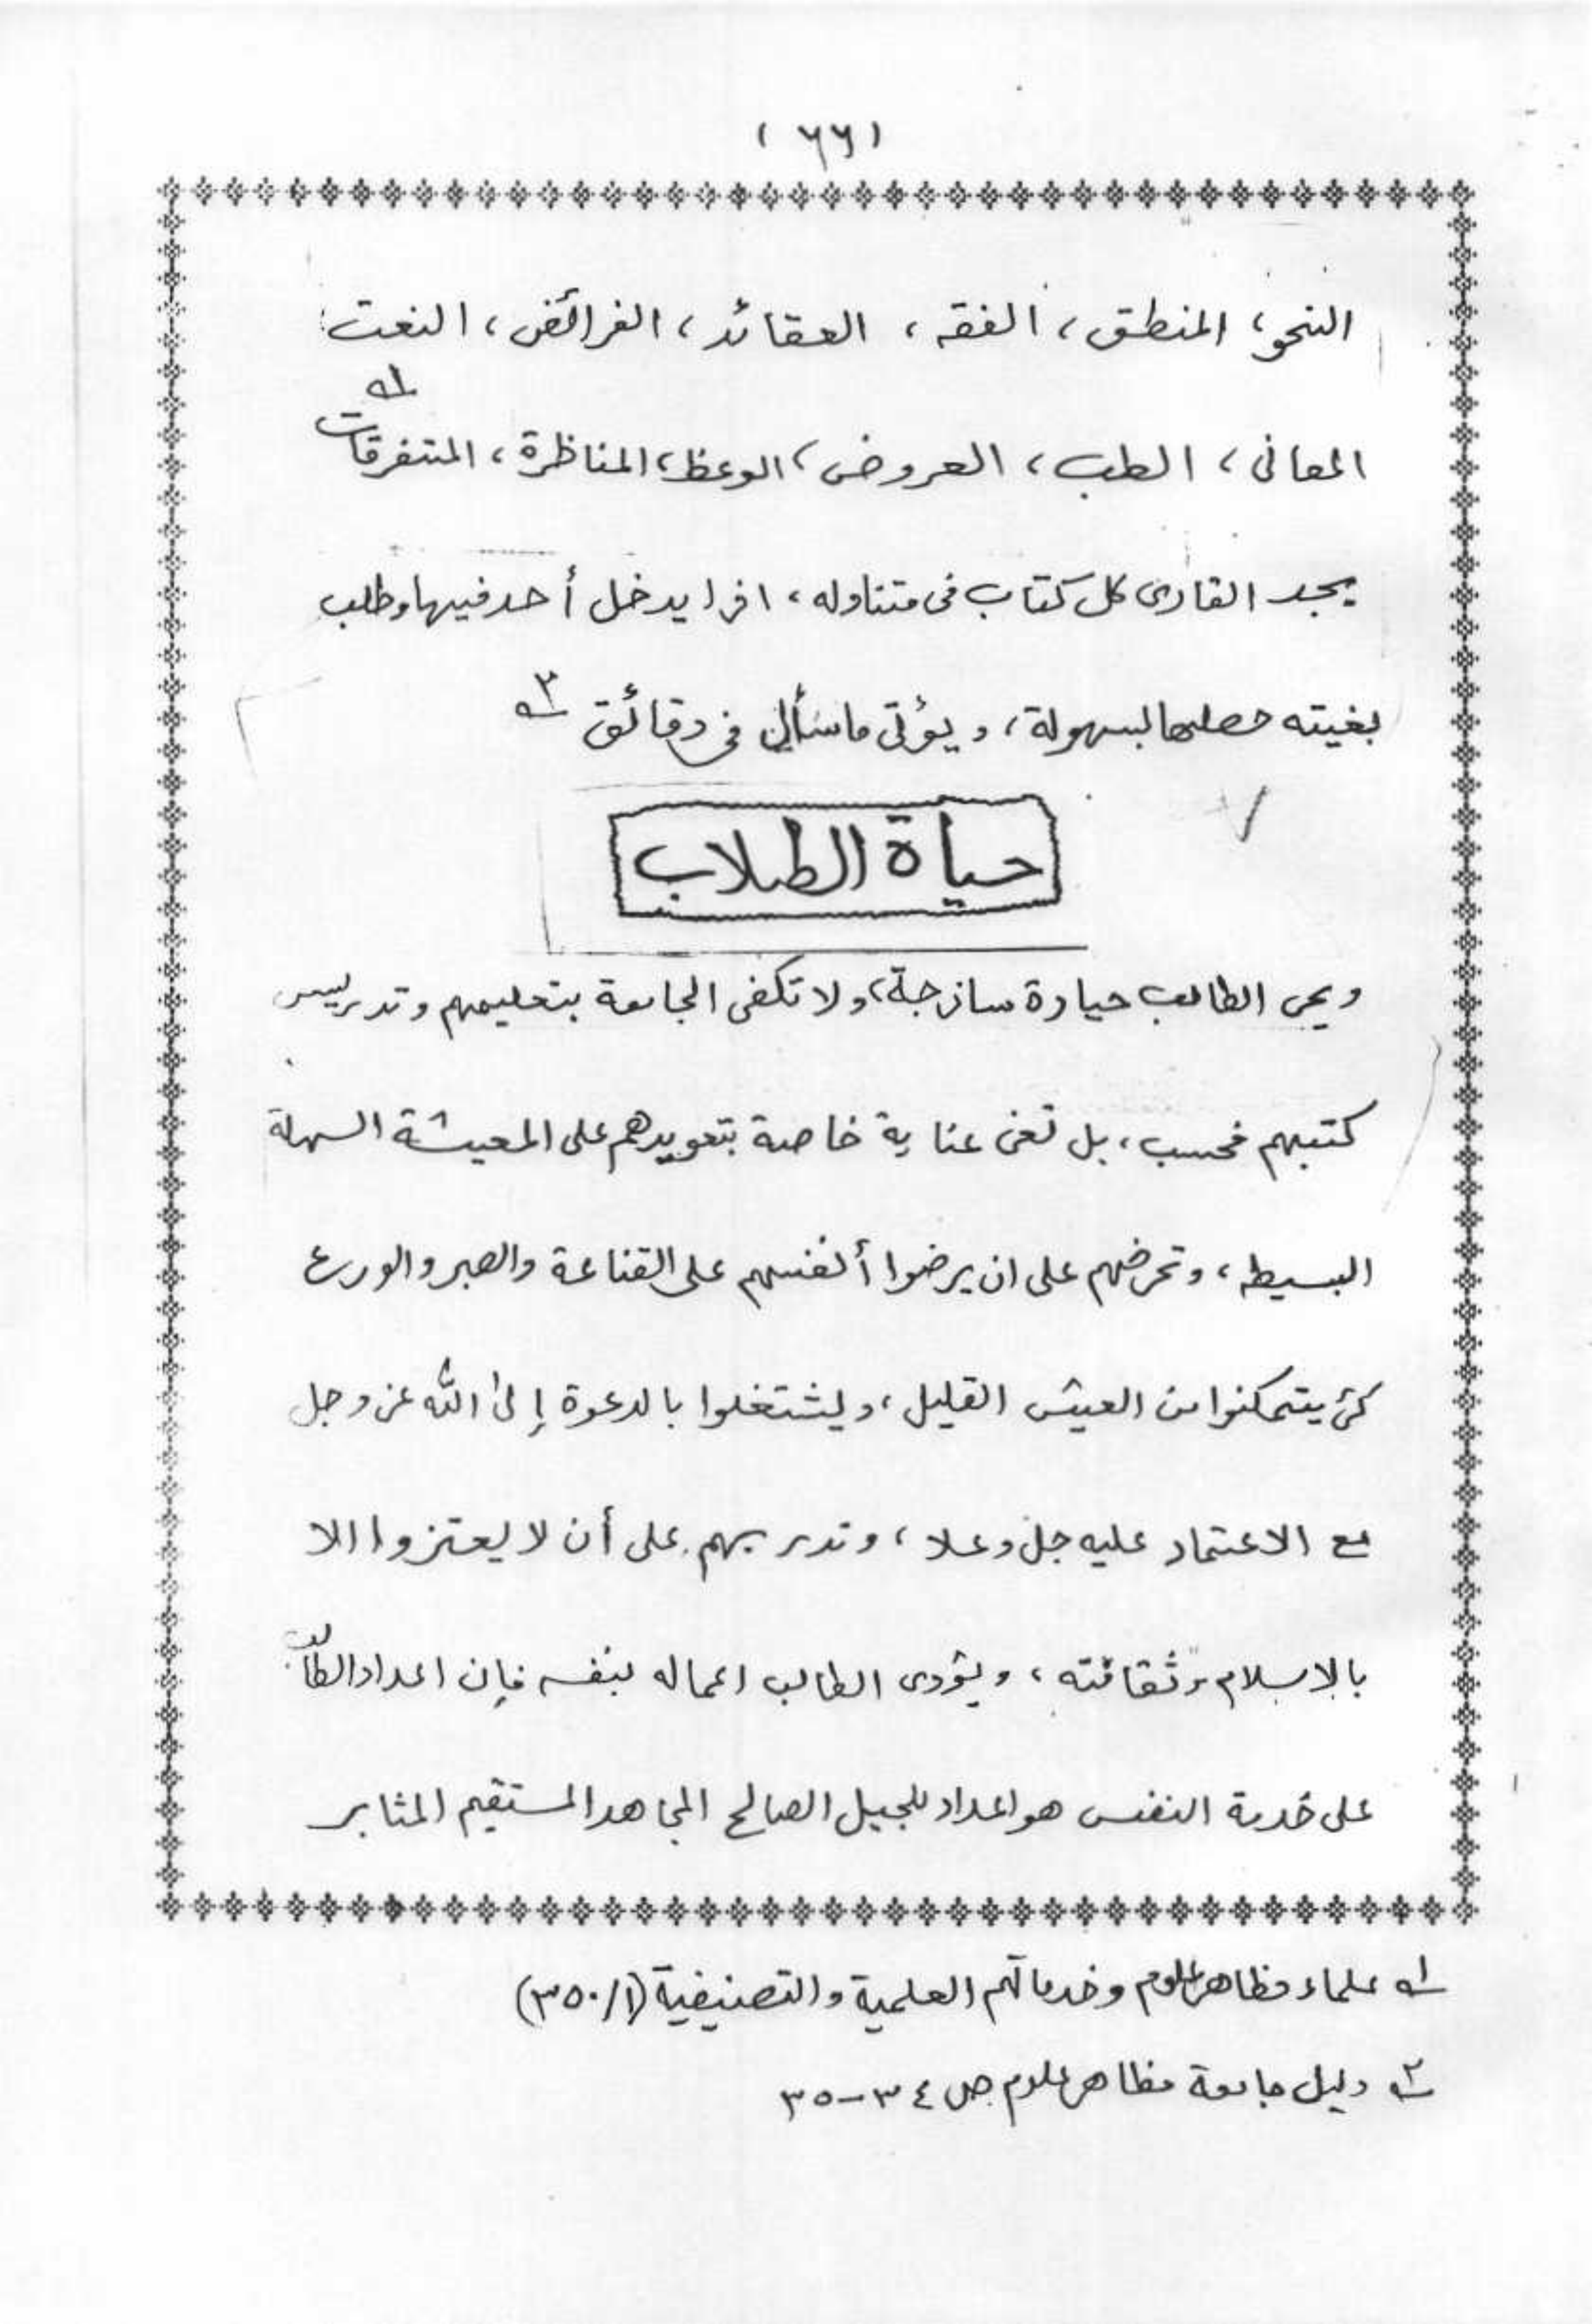 (٦٦)
النحو، المنطق، الفقه، العقائد، الفرائض، النعت
المعانى، الطب، العروض، الوعظ، المناظرة، المتفرقات ١ه
يجد القارى كل كتاب فى متناوله، اذا يدخل أحد فيها وطلب
بغيته حصلها بسهولة، ويؤتى ما سأل فى دقائق ٢ه
حياة الطلاب
ويحى الطالب حياوة ساذجة، ولا تكفى الجامعة بتعليمهم وتدريس
كتبهم فحسب، بل تعنى عناية خاصة بتعويدهم على المعيشة السهلة
البسيطه، وتحرضهم على ان يرضوا أنفسهم على القناعة والصبر والورع
كى يتمكنوا من العيش القليل، وليشتغلوا بالدعوة إلى الله عز وجل
مع الاعتماد عليه جل وعلا، وتدربهم على أن لا يعتزوا الا
بالاسلام وثقافته، ويؤدى الطالب اعماله بنفسه فإن اعداد الطالب
على خدمة النفس هو اعداد للجيل الصالح المجاهد المستقيم المثابر
١ه علماء مظاهر علوم وخدماتهم العلمية والتصنيفية (١/٣٥٠)
٢ه دليل جامعة مظاهر علوم ص ٣٤-٣٥